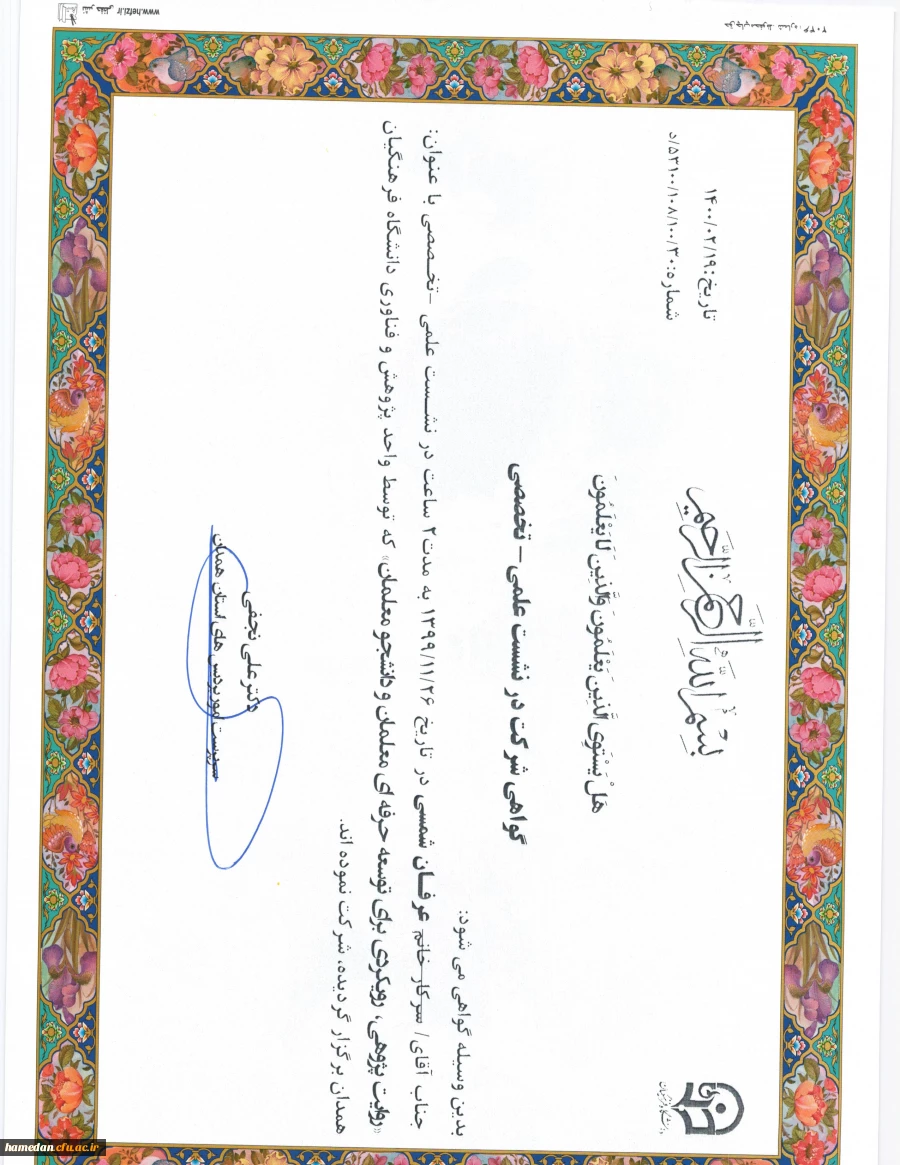 بِسْمِ اللّهِ الرَّحْمنِ الرَّحیمِ
تاریخ:۱۴۰۰/۰۲/۱۹
شماره:۵۳۱۰۰/۱۰۸/۱۰۰/۳۰/د
دانشگاه فرهنگیان
هَلْ یَسْتَوِی الَّذِینَ یَعْلَمُونَ وَالَّذِینَ لَا یَعْلَمُونَ
گواهی شرکت در نشست علمی - تخصصی
بدین وسیله گواهی می شود:
جناب آقای/ سرکار خانم عرفان شمسی در تاریخ ۱۳۹۹/۱۱/۲۶ به مدت۲ ساعت در نشست علمی -تخصصی با عنوان:
«روایت پژوهی، رویکردی برای توسعه حرفه ای معلمان و دانشجو معلمان» که توسط واحد پژوهش و فناوری دانشگاه فرهنگیان
همدان برگزار گردیده، شرکت نموده اند.
دکتر علی نجفی
سرپرست امور پردیس های استان همدان
www.hefzi.ir
hamedan.cfu.ac.ir